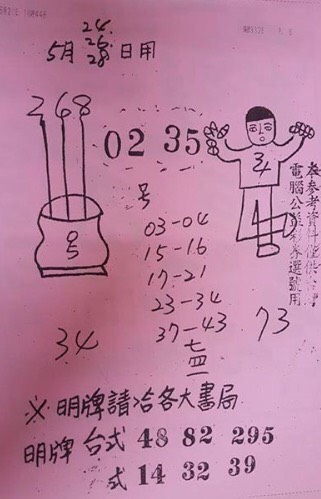 24.
26.
5月28日用
268
02 35
3
4
号
号
03-04
15-16
17-21
23-34
37-43
七
四
34
73
本參考資料僅供台灣
電腦公益彩券選號用
※明牌請洽各大書局
明牌 台式 48 82 295
式 14 32 39